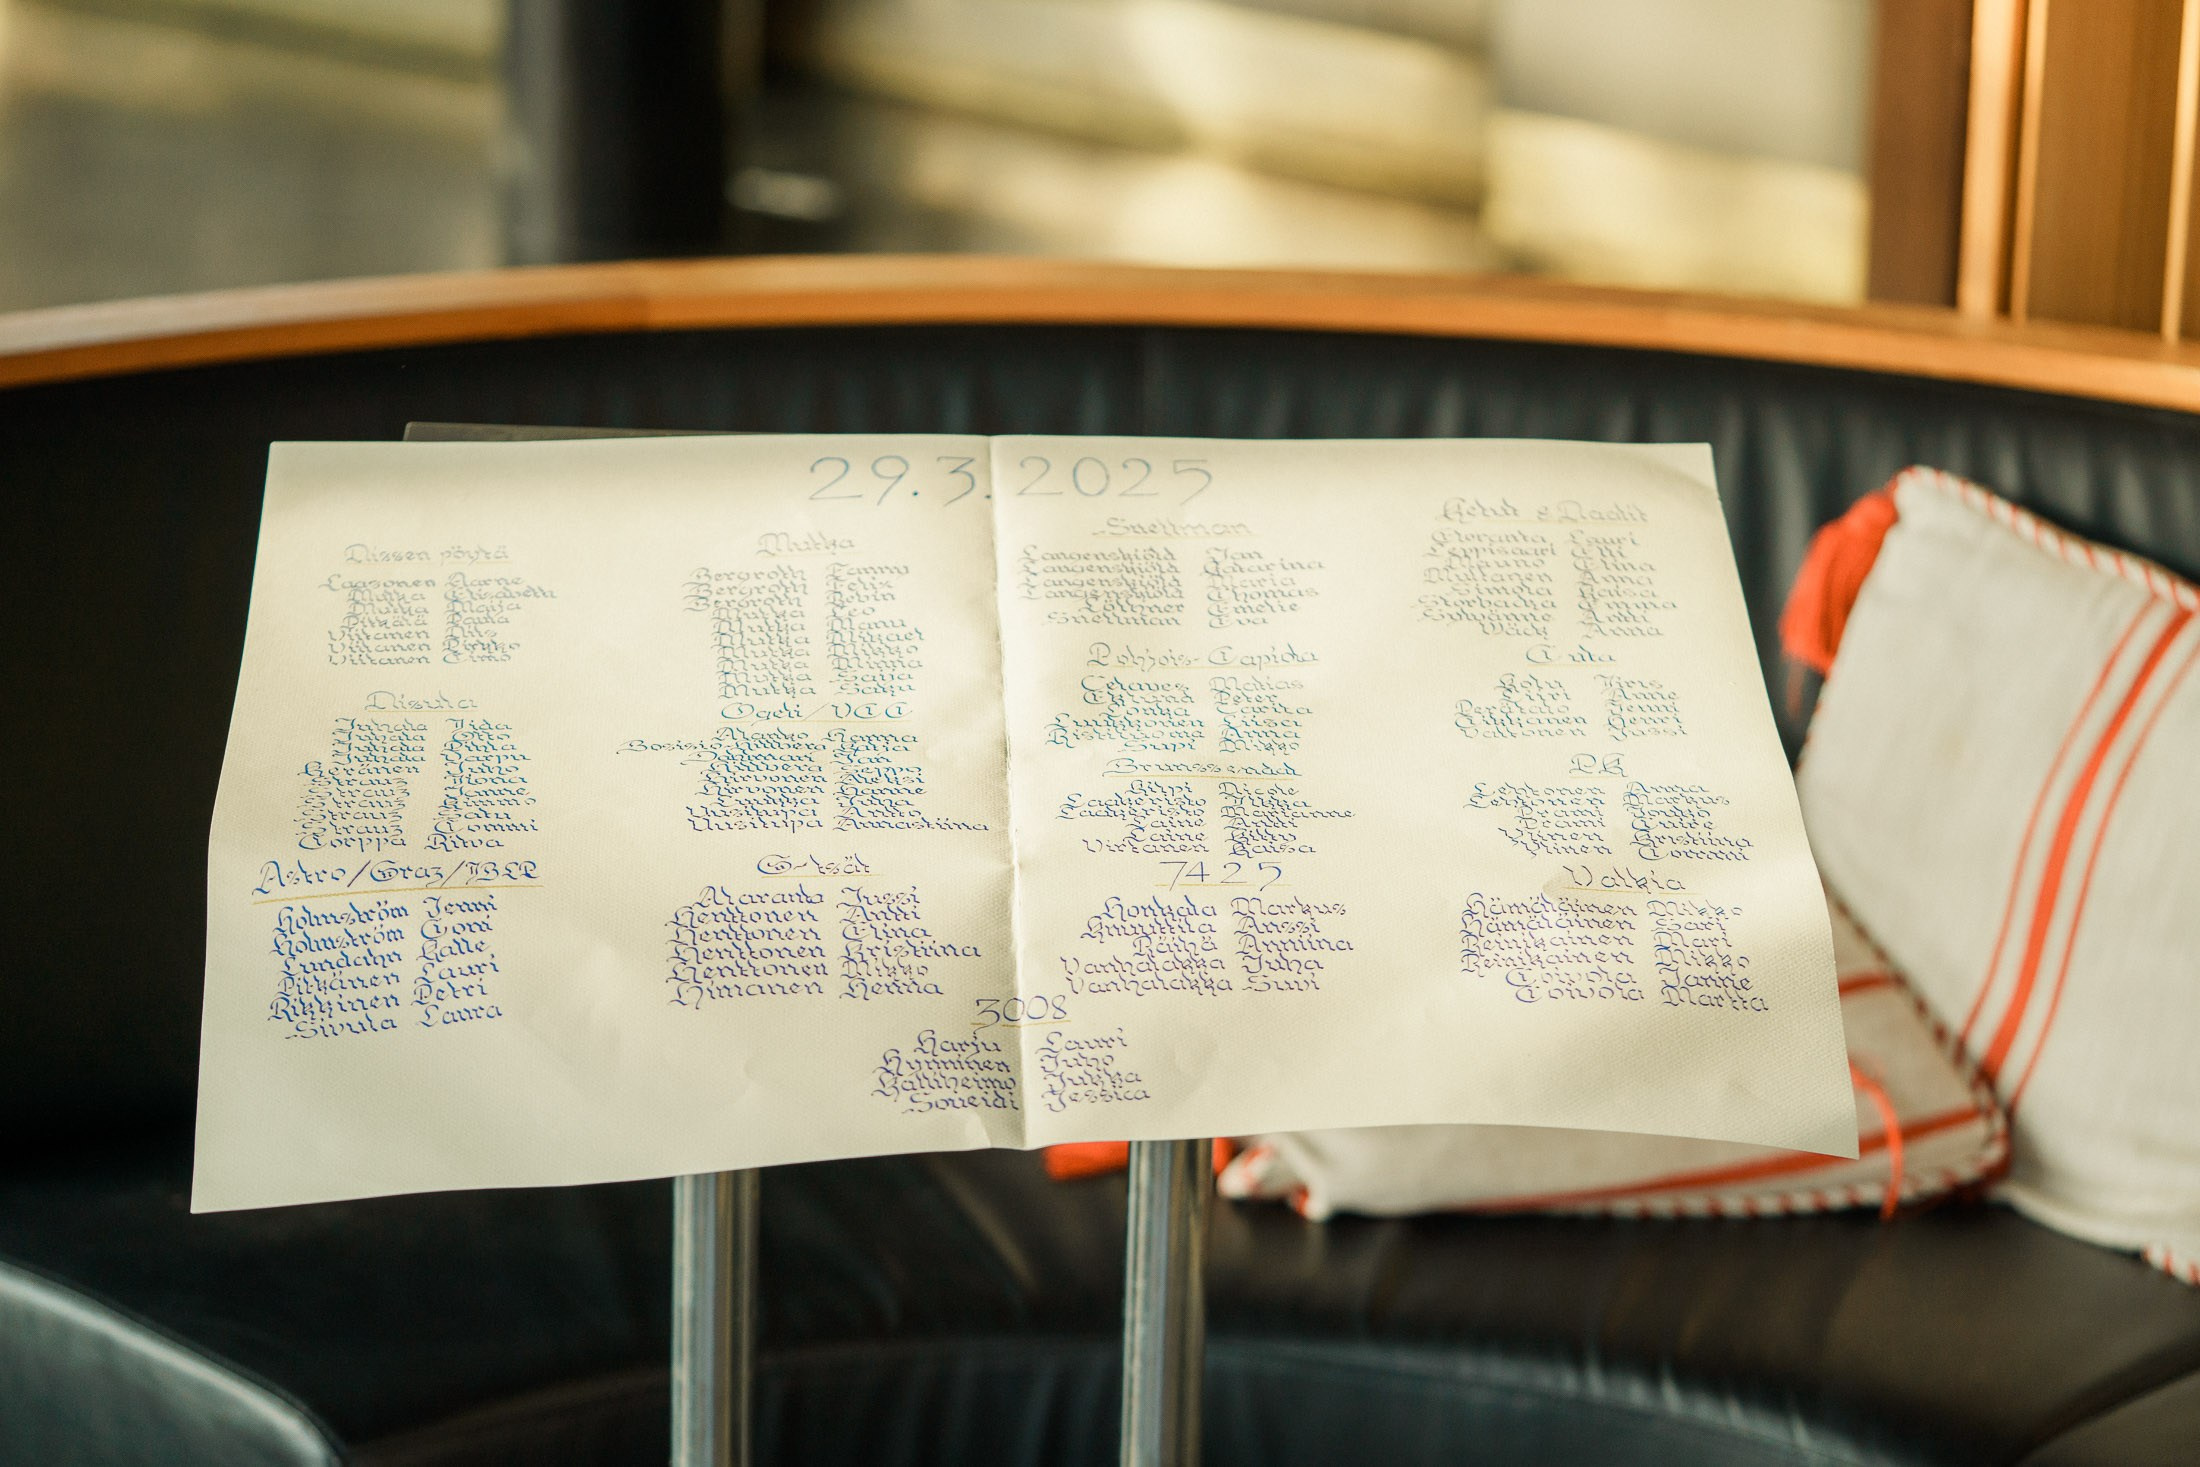 29.3.2025
Nissen pöytä
Laasonen Aarne
Mutka Elisabeth
Mutka Maija
Pitkälä Rama
Viitanen Nils
Viitanen Pirkko
Viitanen Timo
Nisula
Juhala Iida
Juhala Otto
Juhala Piina
Juhala Varpu
Keränen Juho
Strauz Ilona
Strauz Janne
Strauz Kimmo
Strauz Satu
Strauz Tommi
Torppa Ritva
Astro/Graz/JBLP
Holmström Jenni
Holmström Toni
Lundahn Kalle
Pitkänen Lauri
Rikkinen Petri
Sivula Laura
Mutka
Bergroth Fanny
Bergroth Felix
Bergroth Kevin
Mutka Leo
Mutka Manu
Mutka Mikael
Mutka Mikko
Mutka Minna
Mutka Saija
Mutka Saku
Ogeli/VCC
Alarko Hanna
Bosisio-Huivera Kaja
Dohmari Jan
Huivera Seppo
Hirvonen Aleksi
Hirvonen Hanne
Luukka Juha
Uusitupa Antto
Uusitupa Annastiina
G-tsät
Alaranto Jussi
Henttonen Antti
Henttonen Elina
Henttonen Kristiina
Henttonen Mikko
Himanen Henna
Snellman
Langenskjöld Jan
Langenskjöld Catarina
Langenskjöld Maria
Langenskjöld Thomas
Löthner Emelie
Snellman Eva
Pohjois-Tapiola
Celavez Matias
Eklund Peter
Lonka Carita
Luukkonen Liisa
Ristiluoma Anna
Supi Mikko
Brunssendad
Kilpi Nicole
Laakeristo Ilkka
Laakeristo Marianne
Laine Antti
Laine Kitty
Virtanen Kaisa
7425
Honkala Markus
Knuuttila Anssi
Räihä Anniina
Vanhalakka Juha
Vanhalakka Suvi
3008
Harju Lauri
Hynninen Juho
Kalliheimo Jukka
Soueidi Jessica
Ketut & Naalit
Floranta Lauri
Leppisaari Elli
Mauno Elina
Multanen Anna
Simola Kaisa
Storbacka Emma
Sylvänne Antti
Wäck Anna
Tuta
Kolu Jiris
Piiri Anne
Perälaio Jenni
Tikkanen Henri
Valtonen Jussi
P.K
Lehtonen Anna
Lehtonen Markus
Prami Jouko
Prami Tuire
Ylinen Kristiina
Ylinen Torrami
Valkia
Hämäläinen Mikko
Hämäläinen Sari
Reinikainen Mari
Reinikainen Mikko
Toivola Janne
Toivola Martta